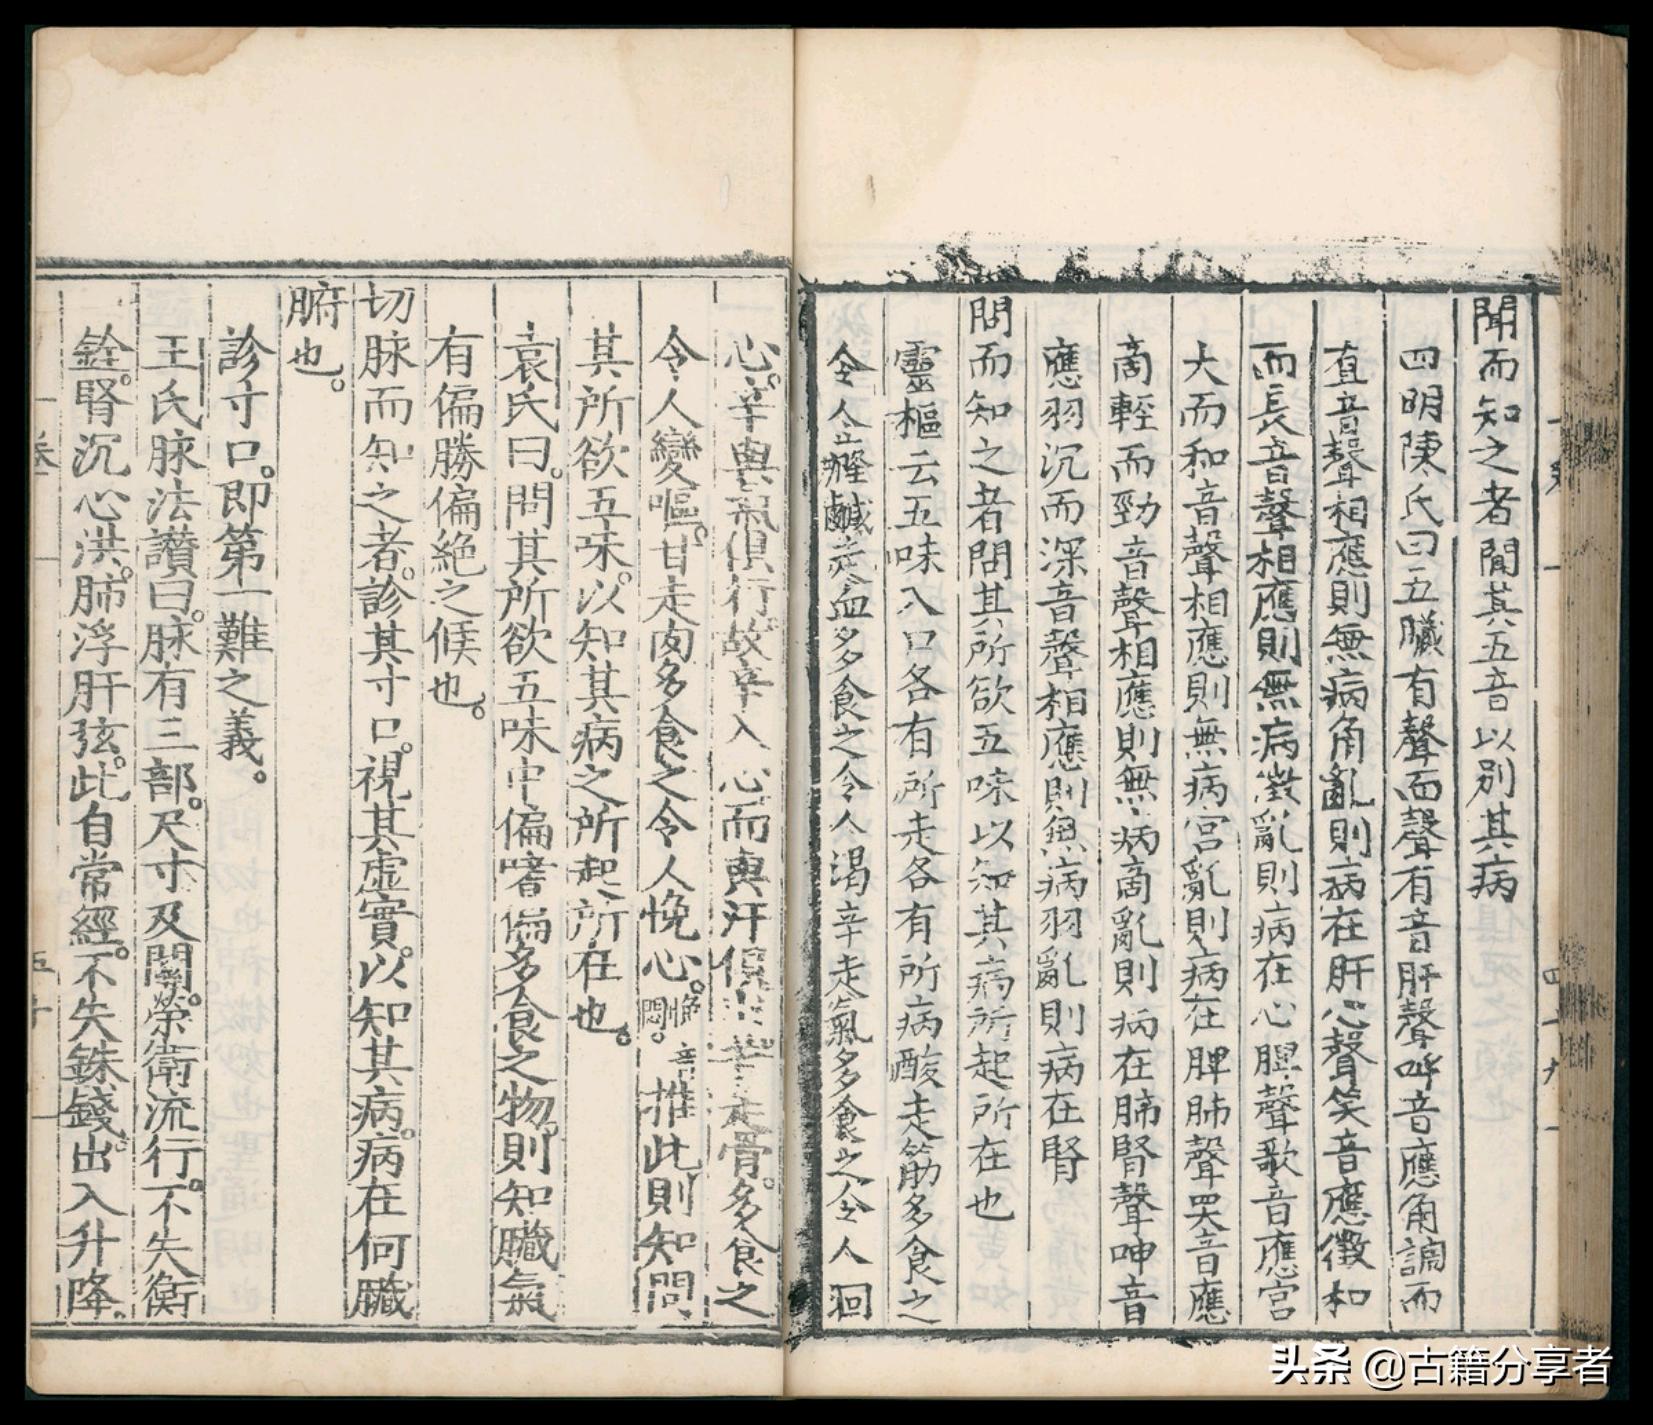 聞而知之者聞其五音以別其病
四明陳氏曰五臟有聲而聲有音肝聲呼音應角調而
直音聲相應則無病角亂則病在肝心聲笑音應徵和
而長音聲相應則無病徵亂則病在心脾聲歌音應宮
大而和音聲相應則無病宮亂則病在脾肺聲哭音應
商輕而勁音聲相應則無病商亂則病在肺腎聲呻音
應羽沉而深音聲相應則無病羽亂則病在腎
問而知之者問其所欲五味以知其病所起所在也
靈樞云五味入口各有所走各有所病酸走筋多食之
令人癃鹹走血多食之令人渴辛走氣多食之令人洞
心。辛與氣俱行。故辛入心而與汗俱 走骨。多食之
令人變嘔。甘走肉多食之令人悗心。悗音悶。推此則知問
其所欲五味。以知其病之所起所在也。
袁氏曰。問其所欲五味中偏嗜偏多食之物。則知臟氣
有偏勝偏絕之候也。
切脉而知之者。診其寸口。視其虛實。以知其病。病在何臟
腑也。
診寸口。即第一難之義。
王氏脉法讚曰。脉有三部。尺寸及關。榮衛流行。不失衡
銓。腎沉心洪。肺浮肝弦。此自常經。不失銖錢。出入升降。
頭条 @古籍分享者